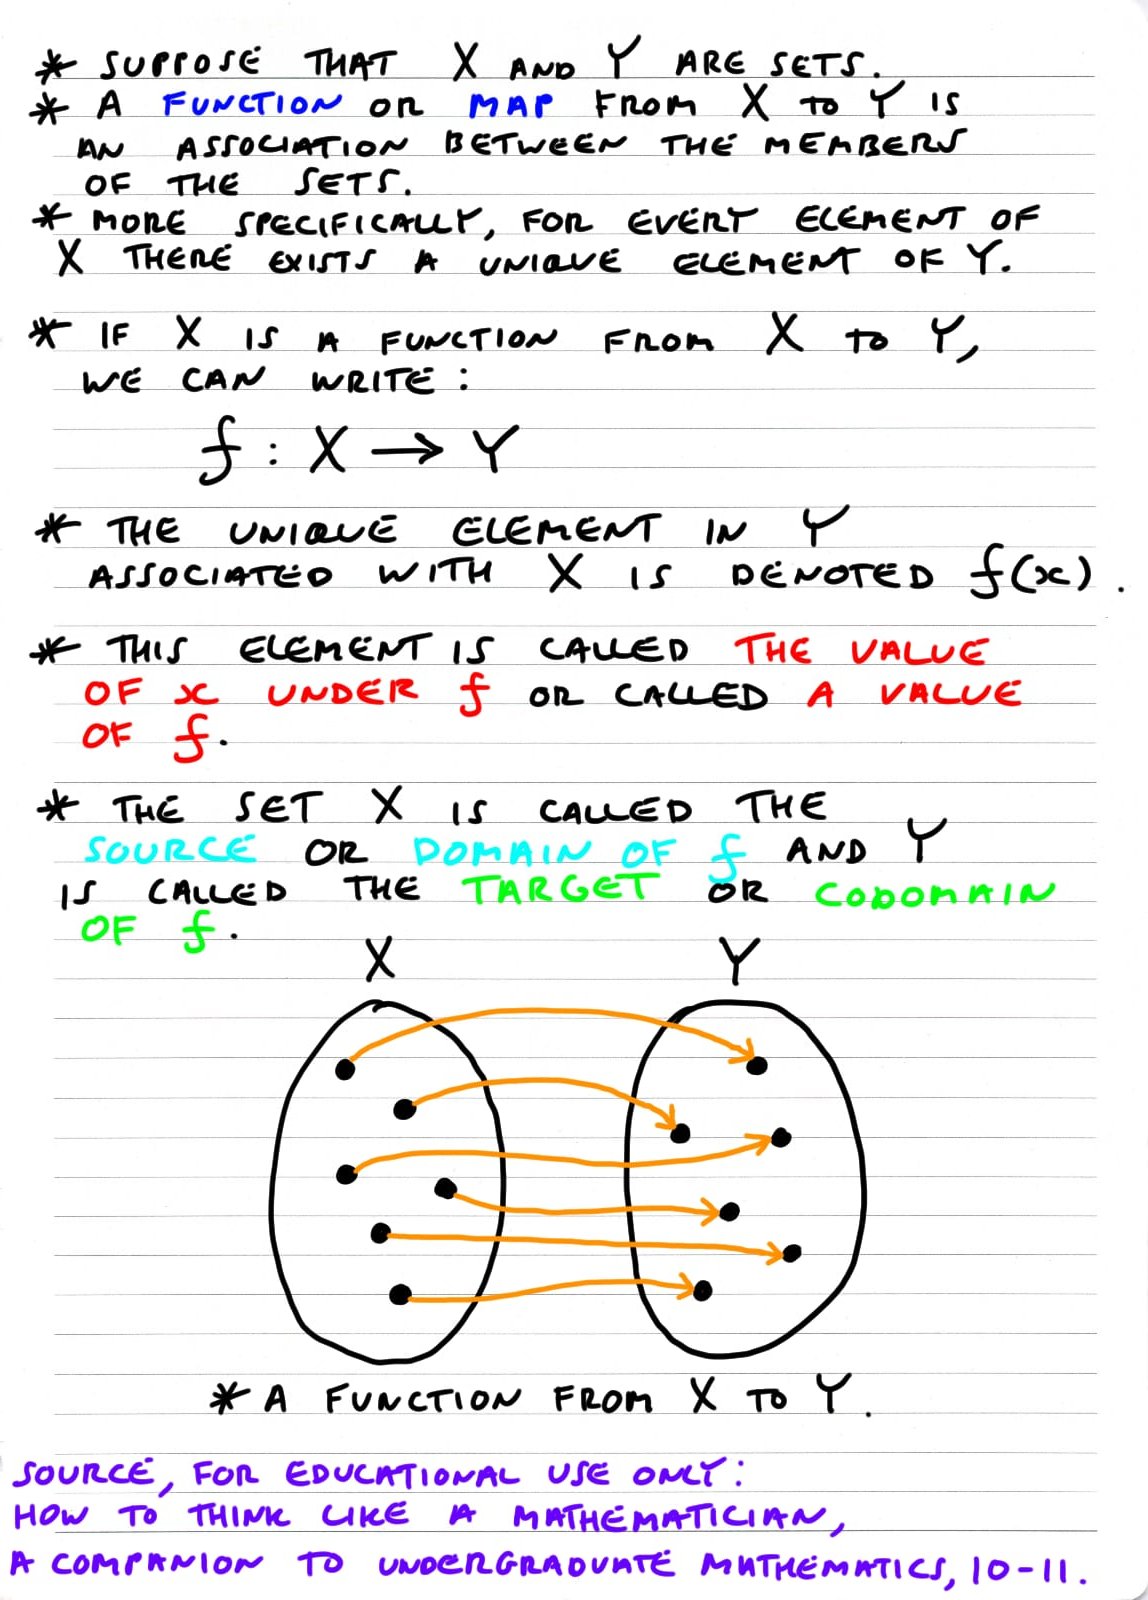 * SUPPOSE THAT X AND Y ARE SETS.
* A FUNCTION OR MAP FROM X TO Y IS
AN ASSOCIATION BETWEEN THE MEMBERS
OF THE SETS.
* MORE SPECIFICALLY, FOR EVERY ELEMENT OF
X THERE EXISTS A UNIQUE ELEMENT OF Y.
* IF X IS A FUNCTION FROM X TO Y,
WE CAN WRITE:
f : X → Y
* THE UNIQUE ELEMENT IN Y
ASSOCIATED WITH X IS DENOTED f(x).
* THIS ELEMENT IS CALLED THE VALUE
OF x UNDER f OR CALLED A VALUE
OF f.
* THE SET X IS CALLED THE
SOURCE OR DOMAIN OF f AND Y
IS CALLED THE TARGET OR CODOMAIN
OF f.
X Y
* A FUNCTION FROM X TO Y.
SOURCE, FOR EDUCATIONAL USE ONLY:
HOW TO THINK LIKE A MATHEMATICIAN,
A COMPANION TO UNDERGRADUATE MATHEMATICS, 10-11.